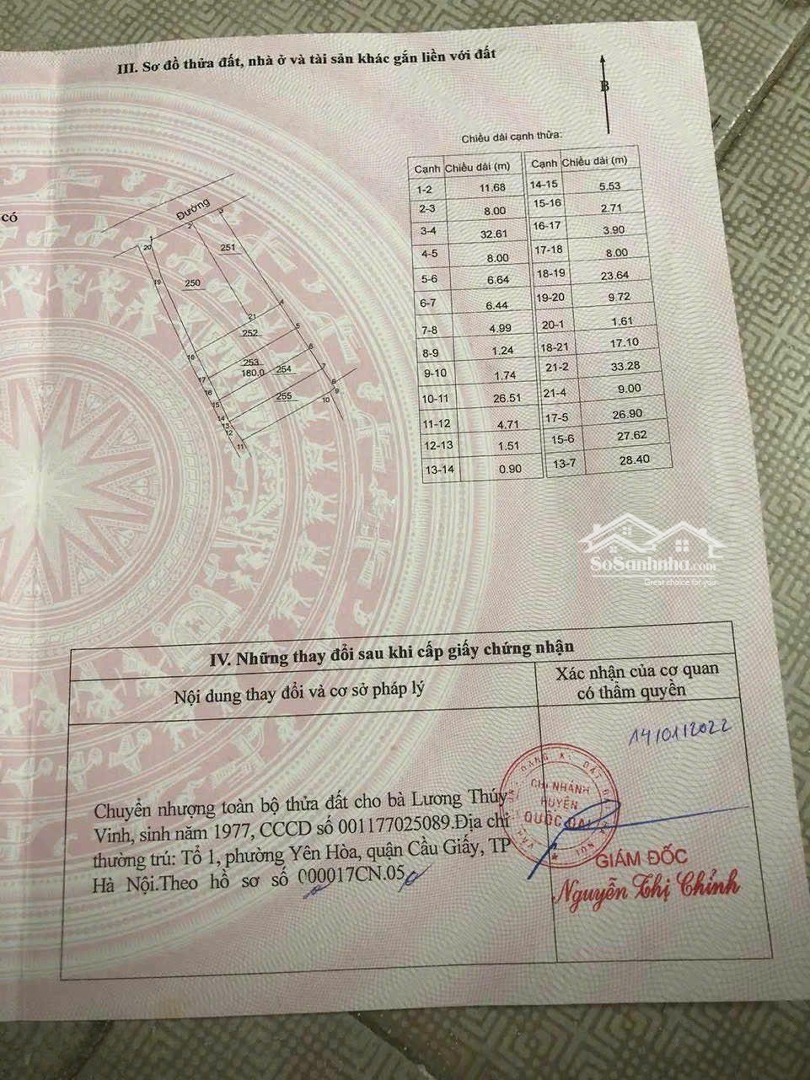 III. Sơ đồ thửa đất, nhà ở và tài sản khác gắn liền với đất
B
có
Đường
1
2
3
20
251
19
250
21
4
252
5
18
253
180,0
254
6
17
16
7
15
255
8
9
14
13
10
12
11
Chiều dài cạnh thửa:
Cạnh Chiều dài (m) Cạnh Chiều dài (m)
1-2 11.68 14-15 5.53
2-3 8.00 15-16 2.71
3-4 32.61 16-17 3.90
4-5 8.00 17-18 8.00
5-6 6.64 18-19 23.64
6-7 6.44 19-20 9.72
7-8 4.99 20-1 1.61
8-9 1.24 18-21 17.10
9-10 1.74 21-2 33.28
10-11 26.51 21-4 9.00
11-12 4.71 17-5 26.90
12-13 1.51 15-6 27.62
13-14 0.90 13-7 28.40
SoSanhnha.com
Great choice for you
IV. Những thay đổi sau khi cấp giấy chứng nhận
Nội dung thay đổi và cơ sở pháp lý
Xác nhận của cơ quan
có thẩm quyền
14/01/2022
Chuyển nhượng toàn bộ thửa đất cho bà Lương Thúy
Vinh, sinh năm 1977, CCCD số 001177025089.Địa chỉ
thường trú: Tổ 1, phường Yên Hòa, quận Cầu Giấy, TP
Hà Nội.Theo hồ sơ số 000017CN.05
CHI NHÁNH
HUYỆN
QUỐC OAI
GIÁM ĐỐC
Nguyễn Thị Chỉnh